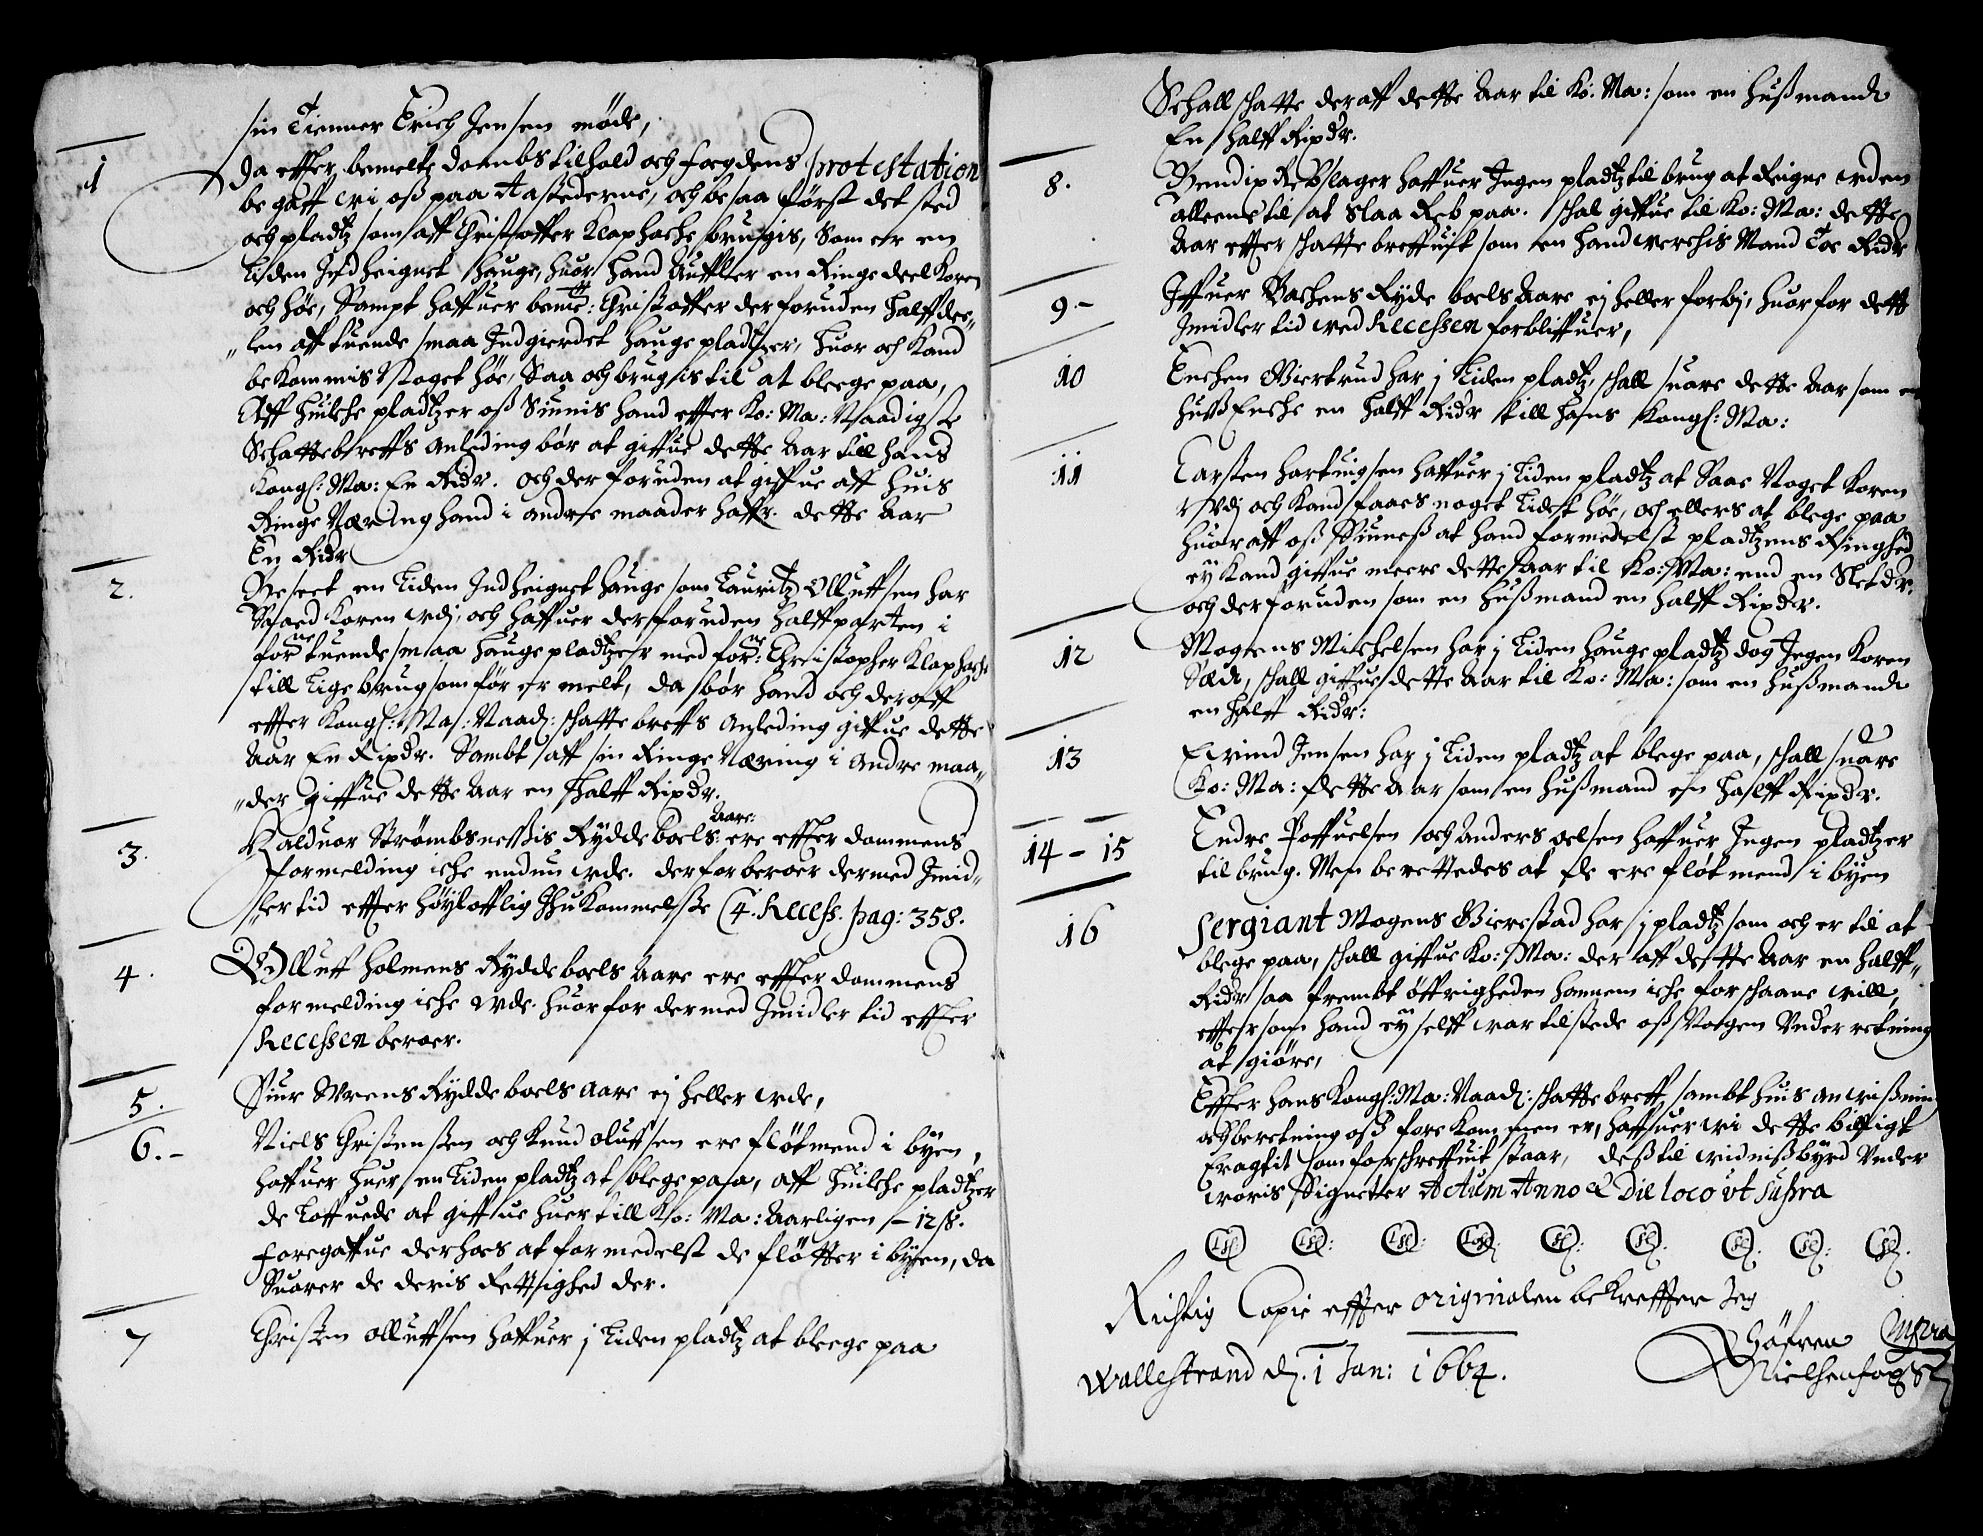 sin Tienner Erich Jensen møde,
1 Da effter bemelte dombs tilhold och fogdens protestation
begaff wi oß paa Aastederne, och besaa først det sted
och pladtz som aff Christoffer Klaphache brugis, Som er en
liden Indheignet hauge, huor hand Auffler en Ringe deel Koren
och høe, Sampt haffuer bemte: Christoffer der foruden halffdee„
„len aff tuende smaa Indgierdet hauge pladtzer, huor och kand
bekommis noget høe, Saa och brugis til at bleege paa,
Aff huilche pladtzer oß Siunis hand effter Ko: Ma: Naadigste
Schattebreffs anleding bør at giffue dette Aar till hans
Kongl: Ma: En Ridr. och der foruden at giffue aff huis
Ringe Næring hand i andre maader haffr. dette Aar
En Ridr
2. Beseet en liden Indheignet hauge som Lauritz Olluffsen har
Saaed Koren udj, och haffuer der foruden halffparten i
forne tuende smaa hauge pladtzer med forne: Christopher Klaphache
till lige brug som før er melt, da bør hand och deraff
effter Kongl: Ma: Naad: schatte breffs anleding giffue dette
Aar En Rixdr. Sambt aff sin Ringe Næring i andre maa„
„der giffue dette Aar en halff Rixdr.
3. Halduor Strømbsneßis Rydde boels Aare: ere effter dommens
formelding iche endnu ude. derfor beroer dermed Imid„
lertid effter høylofflig Ihukommelße C4. Recess. pag: 358.
4. Olluff Holmens Rydde boels Aare ere effter dommens
formelding iche ude. huorfor dermed Imidlertid effter
Recessen beroer.
5. Siur Wrens Rydde boels Aare ej heller ude,
6. Niels Christensen och Knud Oluffsen ere fløtmend i byen,
haffuer huer en liden pladtz at blege paa, aff huilche pladtzer
de loffuede at giffue huer till Ko: Ma: Aarligen – 12 ß.
foregaffue derhoes at formedelst de fløtter i byen, da
Suarer de deris Rettighed der.
7 Christen Olluffsen haffuer j liden pladtz at bleege paa
Schall schatte deraff dette Aar til Ko. Ma: som en Hußmand
En halff Rixdr.
8. Bendix Rebslager haffuer Ingen pladtz til brug at Reigne uden
alleene til at slaa Reb paa. schal giffue til Ko: Ma: dette
Aar effter schatte breffuit som en handwerchis Mand Toe Ridr
9. – Iffuer Bachens Ryde boels Aare ej heller forbj, huorfor dette
Imidlertid ved Recessen forbliffuer,
10 Enchen Giertrud har j liden pladtz, schall suare dette Aar som en
hußEnche en halff Ridr till hans Kongl: Ma:
11 Carsten Hartuigsen haffuer j liden pladtz at Saae Noget Koren
udj och kand faaes noget lidet høe, och ellers at blege paa
huoraff oß Siuneß at hand formedelst pladtzens Ringhed
ey kand giffue meere dette Aar til Ko: Ma: end en Sletdr.
och der foruden som en hußmand en halff Rixdr.
12 Mogens Michelsen har j liden hauge pladtz dog Ingen Koren
Sæd, schall giffue dette Aar til Ko: Ma: som en hußmand
en halff Ridr:
13 Erind Jensen har j liden pladtz at blege paa, schall suare
Ko: Ma: dette Aar som en hußmand en halff Rixdr.
14 – 15 Endre Poffuelsen och Anders Oelsen haffuer Ingen pladtzer
til brug. Men berettedes at de ere fløtmend i byen
16 Sergiant Mogens Bierestad har j pladtz som och er til at
blege paa, schall giffue Ko: Ma: der aff dette Aar en halff„
Ridr saa frembt øffrigheden hannem iche forschaane will,
effter som hand ey selff war tilstede oß Nogen Underretning
at giøre,
Effter hans Kongl: Ma: Naad: schatte breff, sambt huis anwißning
och beretning oß fore kommen er, haffuer wi dette billigt
Eragtit som forschreffuit staar, deß til widnißbyrd Under
woris Signeter Actum Anno & Die loco ut supra
Richtig Copie effter originalen bekreffter Jeg
Wallestrand d. 1 Jan: 1664.
Søfren
Nielsen